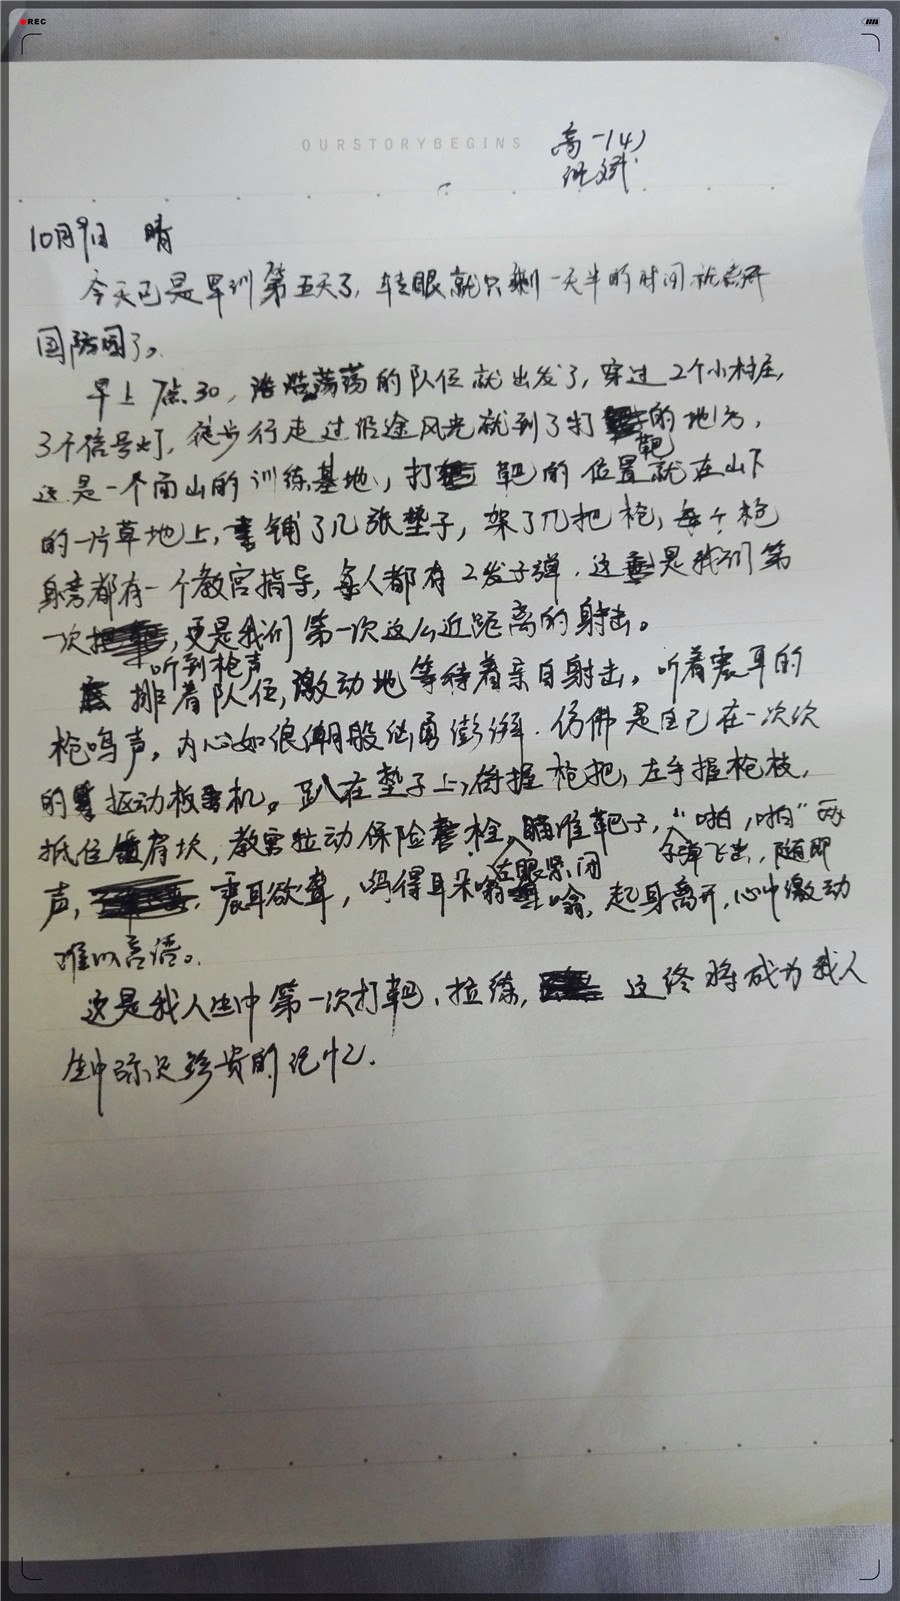 REC
OURSTORYBEGINS
高一(4)
10月9日 晴
今天已是军训第五天了,转眼就只剩一天半的时间就离开
国防园了。
早上7点30,浩浩荡荡的队伍就出发了,穿过2个小村庄,
3个信号灯,徒步行走过沿途风光就到了打靶的地方,
这是一个面山的训练基地,打靶的位置就在山下
的一片草地上,铺了几张垫子,架了几把枪,每个枪
身旁都有一个教官指导,每人都有2发子弹.这是我们第
一次听到枪声,更是我们第一次这么近距离的射击。
排着队伍,激动地等待着亲自射击。听着震耳的
枪鸣声,内心如浪潮般汹勇澎湃.仿佛是自己在一次次
的抠动板机。趴在垫子上,右手握枪把,左手握枪枝,
抵住肩坎,教官拉动保险栓,左眼紧闭,瞄准靶子,“啪,啪”两
声,子弹飞出,随即震耳欲聋,鸣得耳朵嗡嗡,起身离开,心中激动
难以言语。
这是我人生中第一次打靶、拉练,这终将成为我人
生中弥足珍贵的记忆.